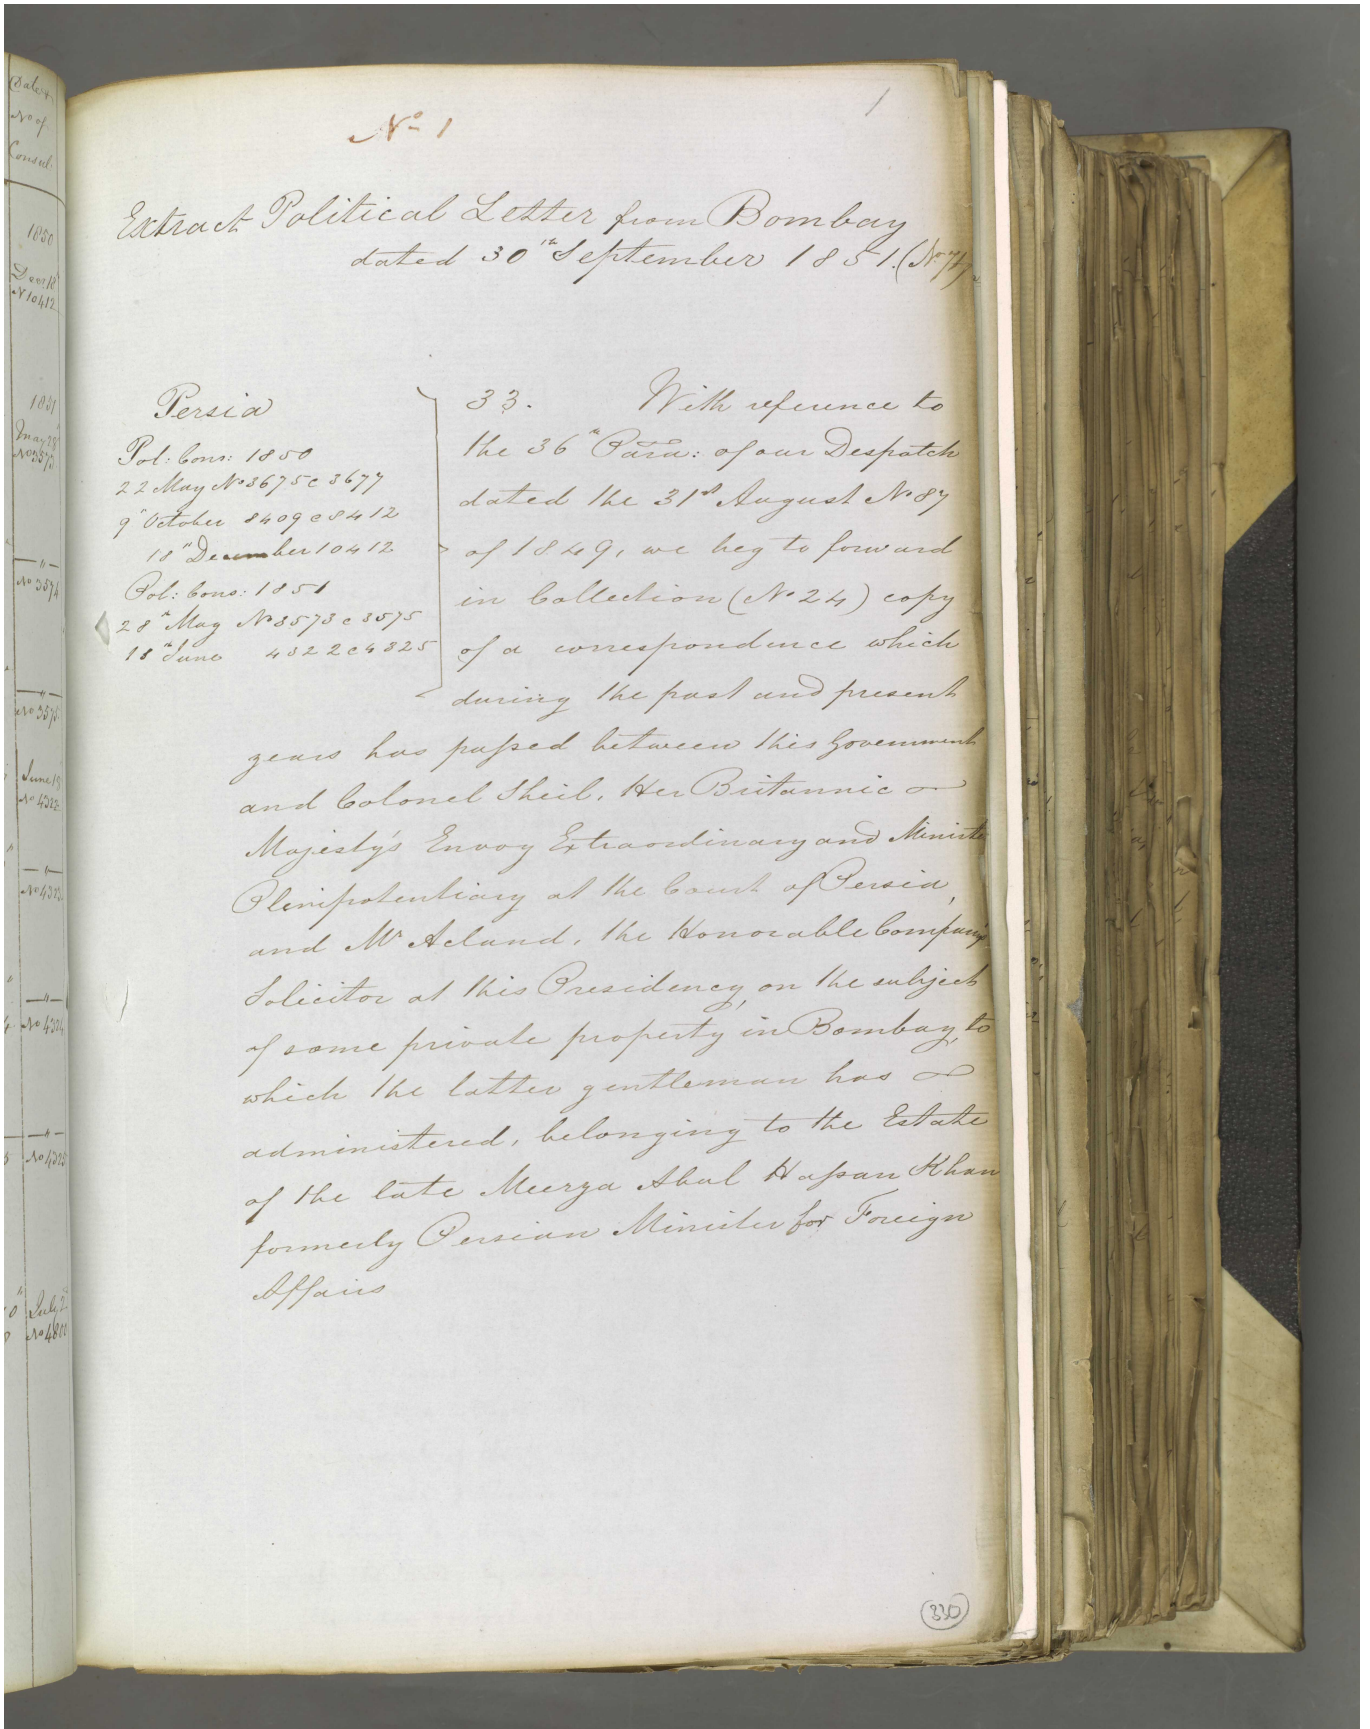 Date &
No of
Consul.
1850
Decr. 18
No 10412
1851
May 28
No 3573
"
No 3574
"
No 3575
June 18
No 4322
"
No 4323
"
No 4324
"
No 4325
July 2
No 480
1
No 1
Extract Political Letter from Bombay
dated 30th September 1851. (No 77)
Persia
Pol: Cons: 1850
22 May No 3675 @ 3677
9" October 8409 @ 8412
18" December 10412
Pol: Cons: 1851
28th May No 3573 @ 3575
18th June 4322 @ 4325
33. With reference to
the 36th Para: of our Despatch
dated the 31st August No 87
of 1849, we beg to forward
in Collection (No 24) copy
of a correspondence which
during the past and present
years has passed between this Government
and Colonel Sheil, Her Britannic
Majesty's Envoy Extraordinary and Ministe
Plenipotentiary at the Court of Persia,
and Mr Acland, the Honorable Company
Solicitor at this Presidency, on the subject
of some private property in Bombay, to
which the latter gentleman has
administered, belonging to the Estate
of the late Meerza Abul Hassan Khan
formerly Persian Minister for Foreign
Affairs
330